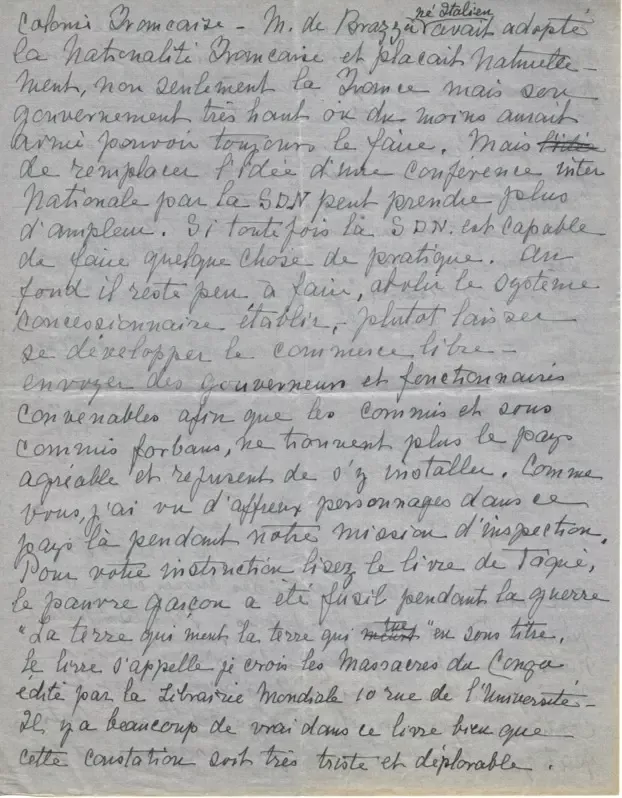 Colonie Francaise - M. de Brazza né Italien avait adopté
la Nationalité Francaise et placait Naturelle-
ment, non seulement la France mais son
gouvernement très haut ou du moins aurait
aimé pouvoir toujours le faire. Mais l'idée
de remplacer l'idée d'une conférence inter
Nationale par la SDN peut prendre plus
d'ampleur. Si toutefois la SDN. est capable
de faire quelque chose de pratique. Au
fond il reste peu à faire, abolir le système
concessionnaire établir, - plutot laisser
se développer le commerce libre -
envoyer des gouverneurs et fonctionnaires
convenables afin que les commis et sous
commis forbans, ne trouvent plus le pays
agréable et refusent de s'y installer. Comme
vous, j'ai vu d'affreux personnages dans ce
pays là pendant notre mission d'inspection.
Pour votre instruction lisez le livre de Toqué,
le pauvre garçon a été fusil pendant la guerre
"La terre qui ment la terre qui meurt tue" en sous titre.
Le livre s'appelle je crois les Massacres du Congo
édité par la Librairie Mondiale 10 rue de l'Université-
Il y a beaucoup de vrai dans ce livre bien que
cette constation soit très triste et déplorable.